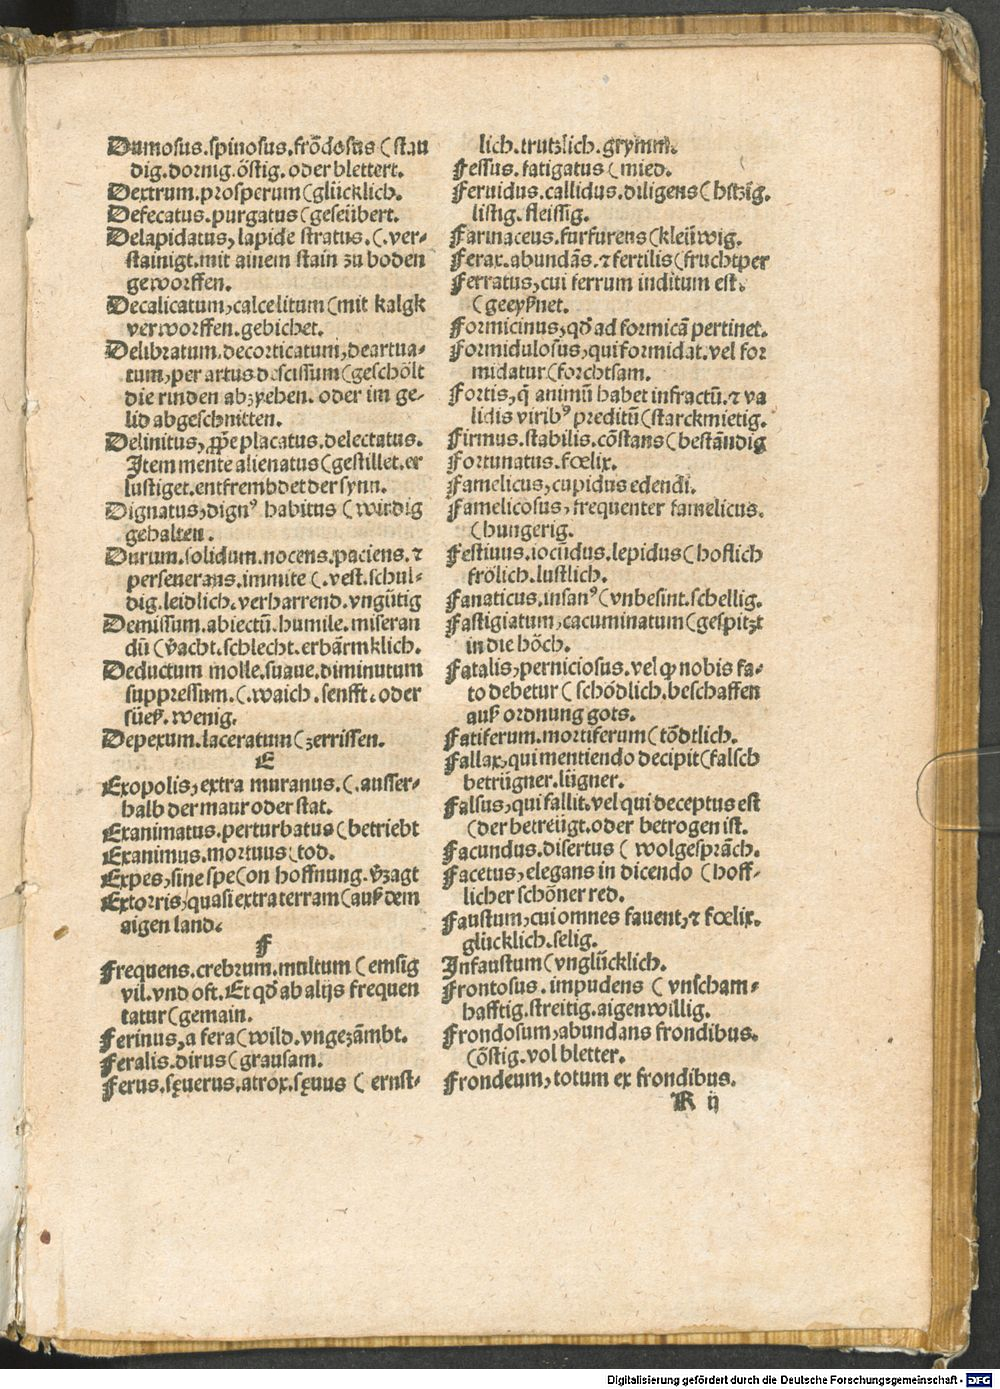 Dumosus.spinosus.frōdosus (stau
dig.dornig.östig.oder blettert.
Dextrum.prosperum (glücklich.
Defecatus.purgatus (geseübert.
Delapidatus, lapide stratus.(.ver-
stainigt.mit ainem stain zu boden
geworffen.
Decalicatum, calcelitum (mit kalgk
verworffen.gebichet.
Delibratum.decorticatum, deartua-
tum, per artus descissum (geschölt
die rinden abzyehen.oder im ge-
lid abgeschnitten.
Delinitus, ꝓpe placatus.delectatus.
Item mente alienatus (gestillet.er
lustiget.entfrembdet der synn.
Dignatus, dignꝰ habitus (wirdig
gehalten.
Durum.solidum.nocens.paciens.⁊
perseuerans.immite (.vest.schul-
dig.leidlich.verharrend.vngütig
Demissum.abiectū.humile.miseran
dū (v̄acht.schlecht.erbārmklich.
Deductum molle.suaue.diminutum
suppressum.(.waich.senfft.oder
süeß.wenig.
Depexum.laceratum (zerrissen.
E
Exopolis, extra muranus.(.ausser-
halb der maur oder stat.
Exanimatus.perturbatus (betriebt
Exanimus.mortuus (tod.
Expes, sine spe (on hoffnung.v̄zagt
Extorris, quasi extra terram (auß dem
aigen land.
F
Frequens.crebrum.multum (emsig
vil.vnd oft.Et qd̄ ab alijs frequen
tatur (gemain.
Ferinus, a fera (wild.vngezāmbt.
Feralis.dirus (grausam.
Ferus.sęuerus.atrox.sęuus (ernst-
lich.trutzlich.grymm.
Fessus.fatigatus (mied.
Feruidus.callidus.diligens (hitzig.
listig.fleissig.
Farinaceus.furfurens (kleüwig.
Ferax.abundās.⁊ fertilis (fruchtper
Ferratus, cui ferrum inditum est.
(geeyßnet.
Formicinus, qd̄ ad formicā pertinet.
Formidulosus, qui formidat.vel for
midatur (forchtsam.
Fortis, q̄ animū habet infractū.⁊ va
lidis viribꝰ preditū (starckmietig.
Firmus.stabilis.cōstans (bestāndig
Fortunatus.fœlix.
Famelicus, cupidus edendi.
Famelicosus, frequenter famelicus.
(hungerig.
Festiuus.iocūdus.lepidus (hoflich
frölich.lustlich.
Fanaticus.insanꝰ (vnbesint.schellig.
Fastigiatum, cacuminatum (gespitzt
in die höch.
Fatalis, perniciosus.vel ꝙ nobis fa-
to debetur (schödlich.beschaffen
auß ordnung gots.
Fatiferum.mortiferum (tödtlich.
Fallax, qui mentiendo decipit (falsch
betrügner.lügner.
Falsus, qui fallit.vel qui deceptus est
(der betreügt.oder betrogen ist.
Facundus.disertus (wolgesprāch.
Facetus, elegans in dicendo (hoff-
licher schöner red.
Faustum, cui omnes fauent, ⁊ fœlix.
glücklich.selig.
Infaustum (vnglücklich.
Frontosus.impudens (vnscham-
hafftig.streitig.aigenwillig.
Frondosum, abundans frondibus.
(östig.vol bletter.
Frondeum, totum ex frondibus.
K ij
Digitalisierung gefördert durch die Deutsche Forschungsgemeinschaft - DFG